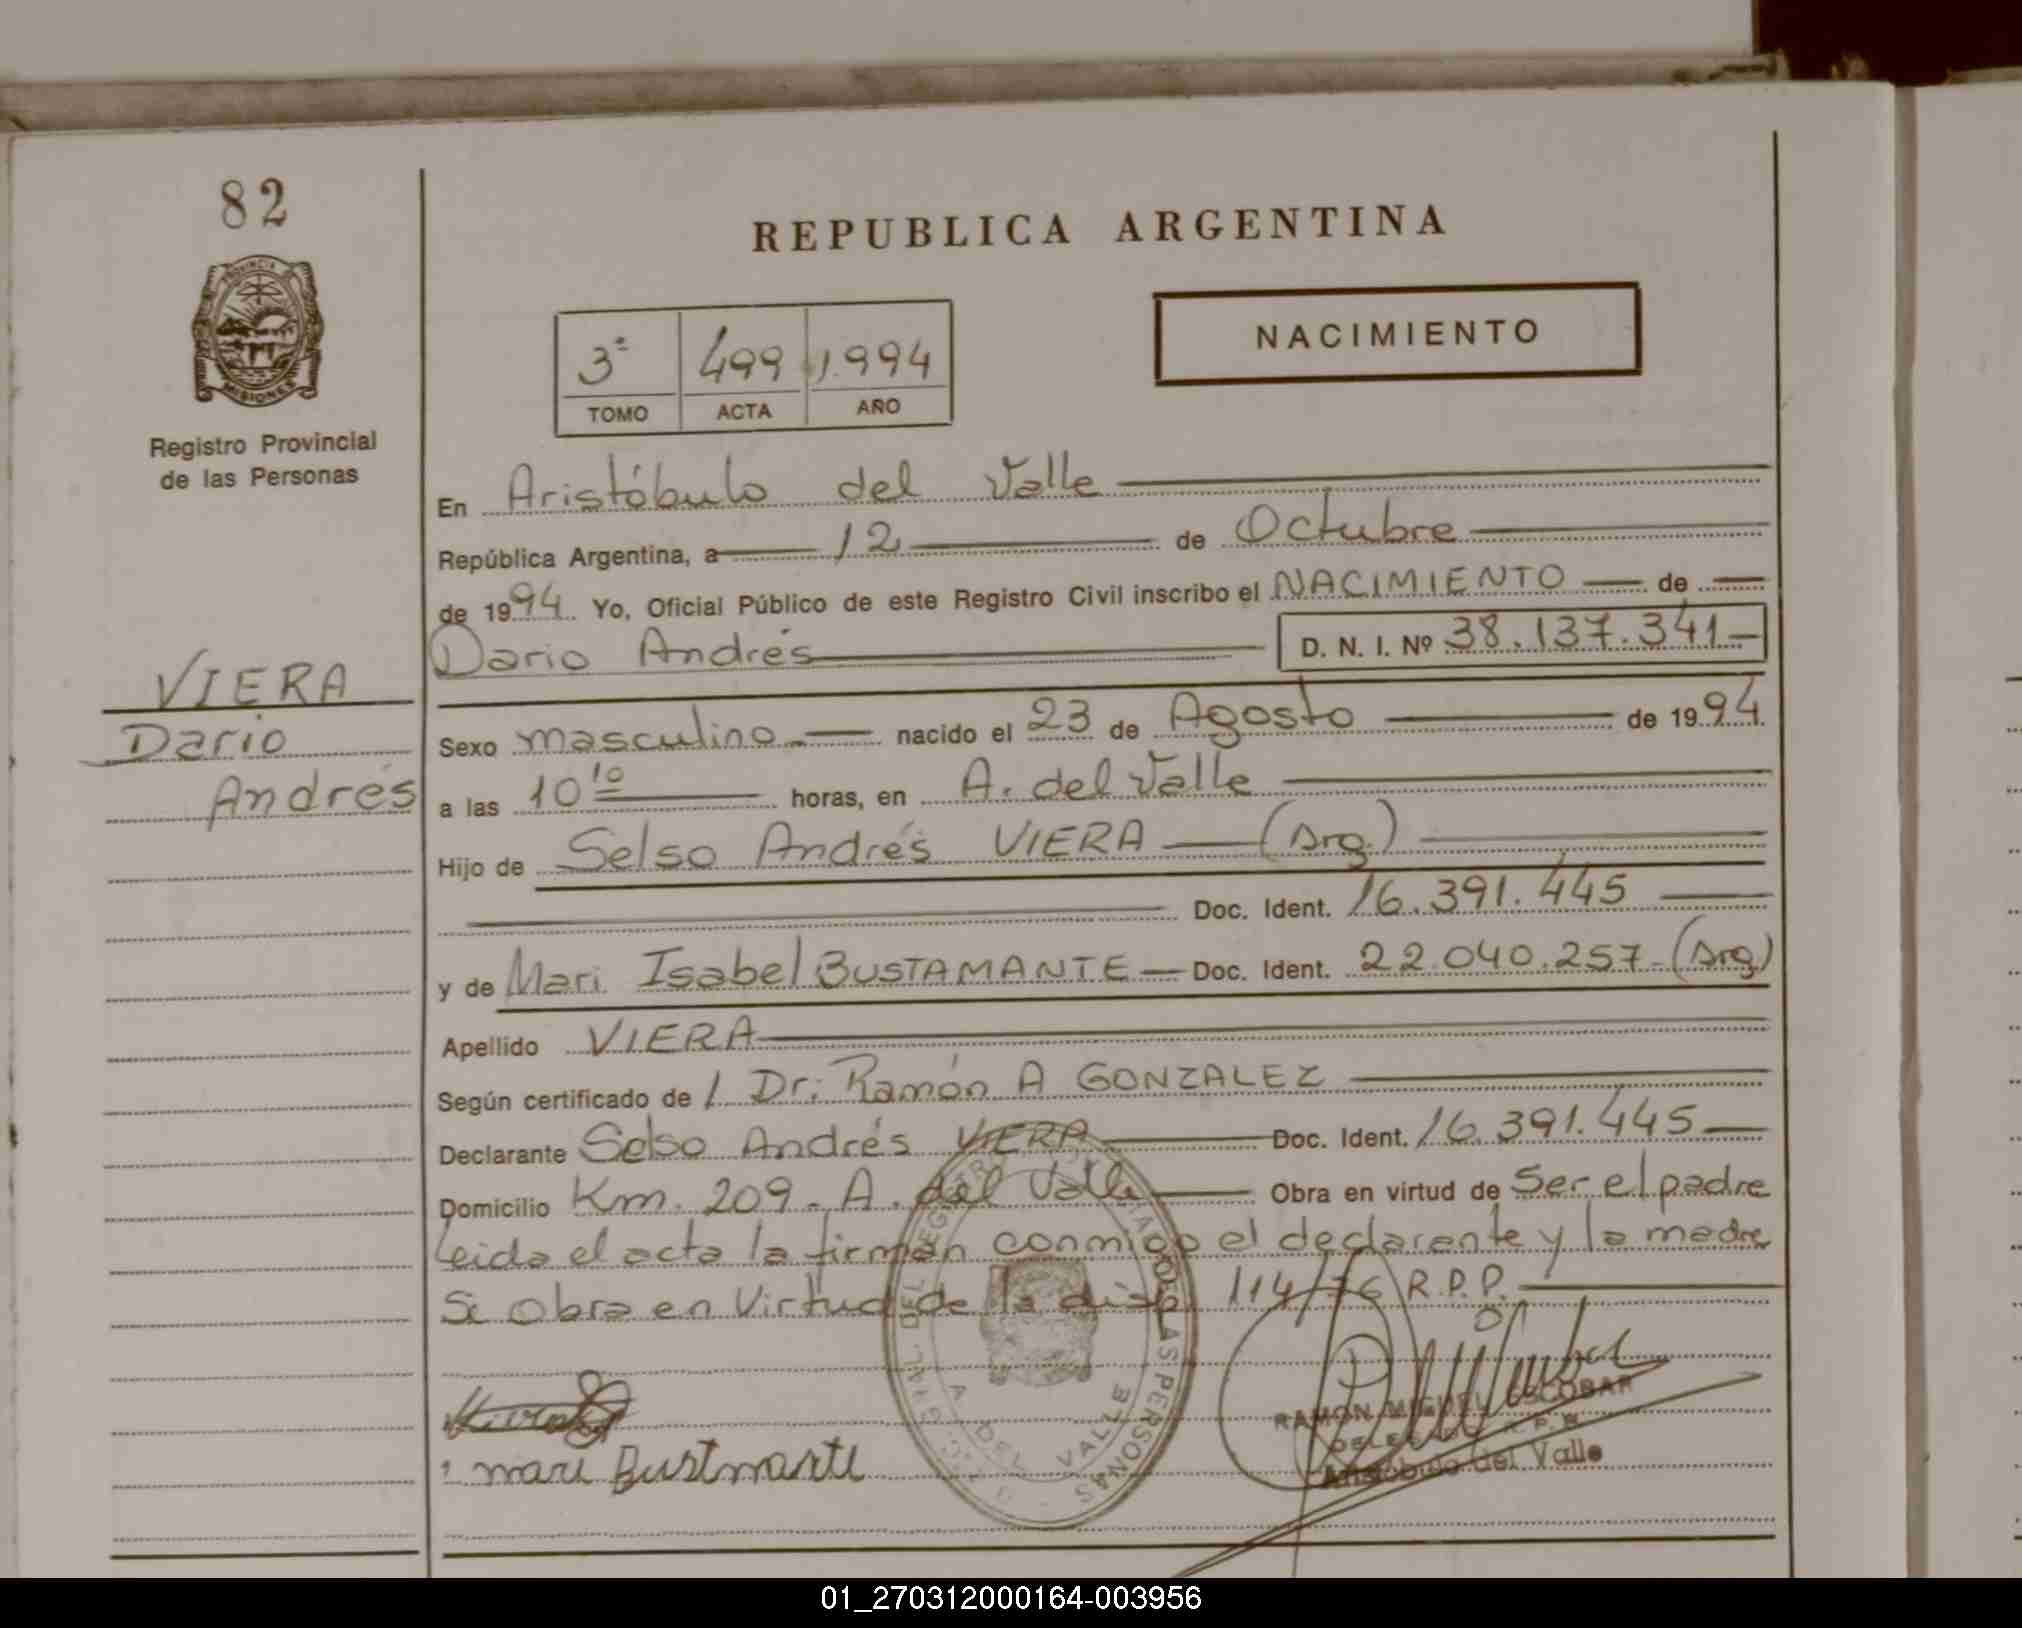 82
REPUBLICA ARGENTINA
PROVINCIA
MISIONES
Registro Provincial
de las Personas
NACIMIENTO
3º 499 1.994
TOMO ACTA AÑO
En Aristóbulo del Valle
República Argentina, a 12 de Octubre
de 1994. Yo, Oficial Público de este Registro Civil inscribo el NACIMIENTO de
Dario Andrés D. N. I. Nº 38.137.341
VIERA
Dario
Andrés
Sexo masculino nacido el 23 de Agosto de 1994
a las 10 10 horas, en A. del Valle
Hijo de Selso Andrés VIERA (Arg.)
Doc. Ident. 16.391.445
y de Mari Isabel BUSTAMANTE Doc. Ident. 22.040.257 (Arg)
Apellido VIERA
Según certificado de / Dr: Ramón A GONZALEZ
Declarante Selso Andrés VIERA Doc. Ident. 16.391.445
Domicilio Km. 209 - A. del Valle Obra en virtud de Ser el padre
Leida el acta la firman conmigo el declarante y la madre
Se obra en Virtud de la disp. 114/76 R.P.P.
RAMON MIGUEL ESCOBAR
DELEGADO R. P. P.
Aristóbulo del Valle
mari Bustmante
A. DEL VALLE
DE LAS PERSONAS
01_270312000164-003956